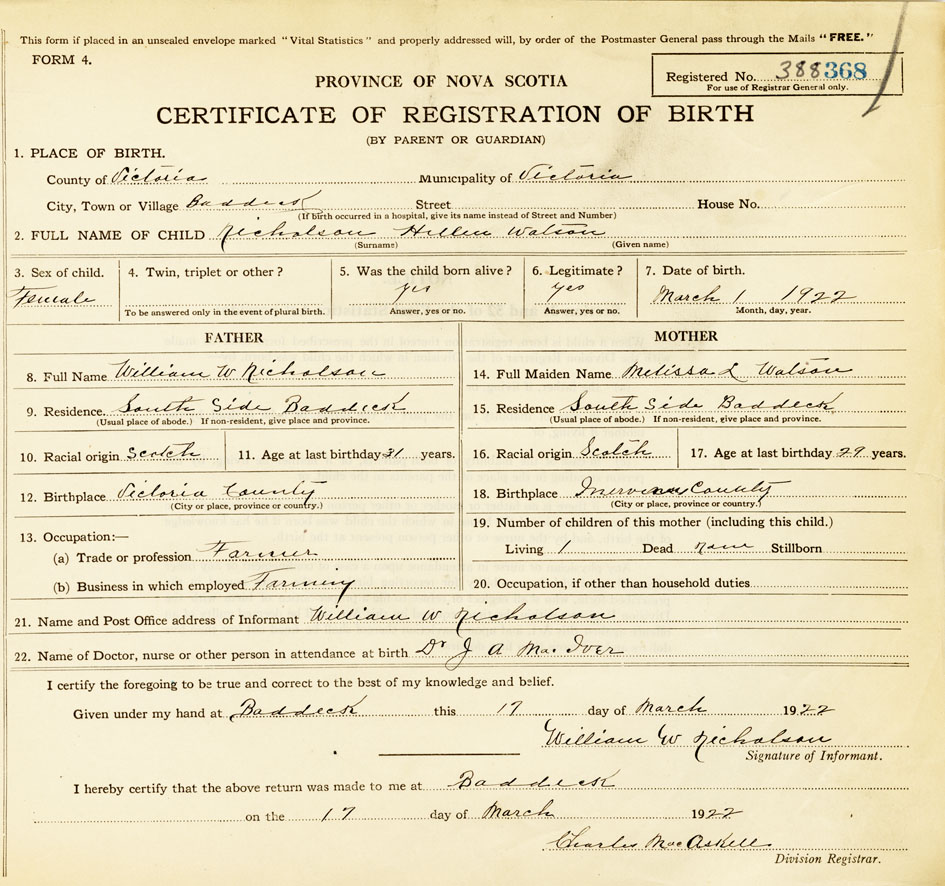 This form if placed in an unsealed envelope marked "Vital Statistics" and properly addressed will, by order of the Postmaster General pass through the Mails "FREE."
FORM 4.
PROVINCE OF NOVA SCOTIA
Registered No. 388368
For use of Registrar General only.
CERTIFICATE OF REGISTRATION OF BIRTH
(BY PARENT OR GUARDIAN)
1. PLACE OF BIRTH.
County of Victoria Municipality of Victoria
City, Town or Village Baddeck Street House No.
(If birth occurred in a hospital, give its name instead of Street and Number)
2. FULL NAME OF CHILD Nicholson Hellen Watson
(Surname) (Given name)
3. Sex of child. 4. Twin, triplet or other? 5. Was the child born alive? 6. Legitimate? 7. Date of birth.
Female yes yes March 1 1922
To be answered only in the event of plural birth. Answer, yes or no. Answer, yes or no. Month, day, year.
FATHER MOTHER
8. Full Name William W Nicholson 14. Full Maiden Name Melissa L Watson
9. Residence. South Side Baddeck 15. Residence South Side Baddeck
(Usual place of abode.) If non-resident, give place and province. (Usual place of abode.) If non-resident, give place and province.
10. Racial origin Scotch 11. Age at last birthday 31 years. 16. Racial origin Scotch 17. Age at last birthday 29 years.
12. Birthplace Victoria County 18. Birthplace County
(City or place, province or country.) (City or place, province or country.)
13. Occupation:— 19. Number of children of this mother (including this child.)
(a) Trade or profession Farmer Living 1 Dead none Stillborn
(b) Business in which employed Farming 20. Occupation, if other than household duties
21. Name and Post Office address of Informant William W Nicholson
22. Name of Doctor, nurse or other person in attendance at birth Dr J A Mac Iver
I certify the foregoing to be true and correct to the best of my knowledge and belief.
Given under my hand at Baddeck this 17 day of March 1922
William W Nicholson
Signature of Informant.
I hereby certify that the above return was made to me at Baddeck
on the 17 day of March 1922
Charles MacAskell
Division Registrar.